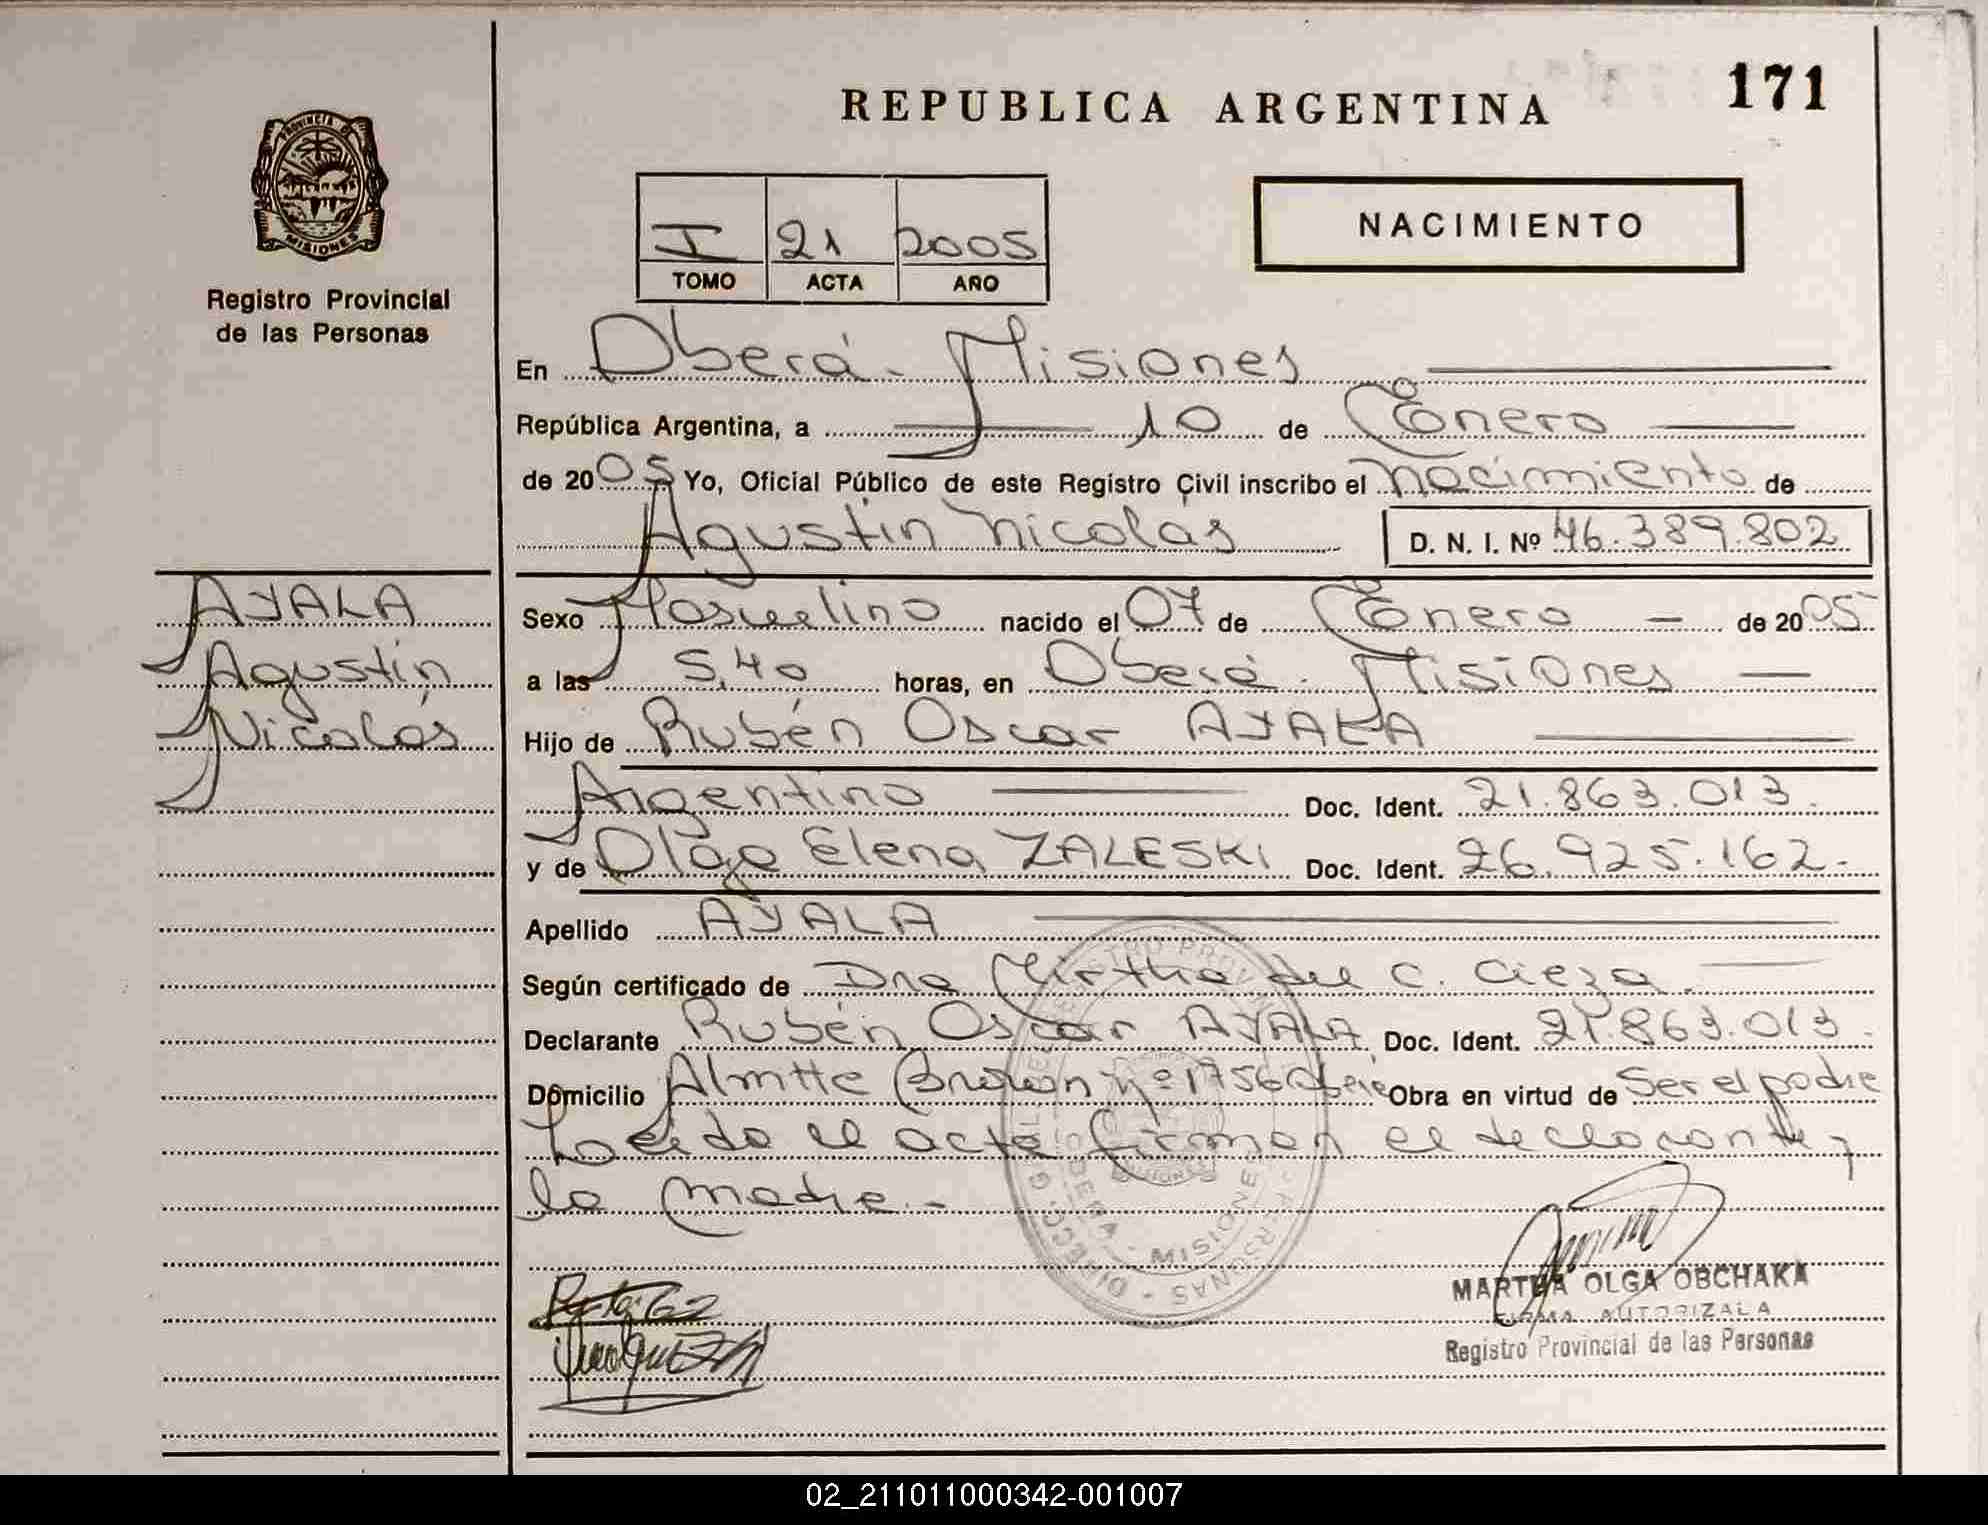 171
REPUBLICA ARGENTINA
PROVINCIA DE
MISIONES
Registro Provincial
de las Personas
I 21 2005
TOMO ACTA AÑO
NACIMIENTO
En Oberá - Misiones
República Argentina, a 10 de Enero
de 2005 Yo, Oficial Público de este Registro Civil inscribo el nacimiento de
Agustín Nicolás D. N. I. Nº 46.389.802
AYALA
Agustín
Nicolás
Sexo Masculino nacido el 07 de Enero - de 2005
a las 5,40 horas, en Oberá - Misiones
Hijo de Rubén Oscar AYALA
Argentino Doc. Ident. 21.863.013.
y de Olga Elena ZALESKI Doc. Ident. 26.925.162.-
Apellido AYALA
Según certificado de Dra Mirtha del C. Cieza.
Declarante Rubén Oscar AYALA Doc. Ident. 21.863.013.
Domicilio Almtte Brown nº 1756 Obera Obra en virtud de Ser el padre
Leido el acta firman el declarante y
la madre.-
OBERA - MISIONES
MARTHA OLGA OBCHAKA
FIRMA AUTORIZADA
Registro Provincial de las Personas
02_211011000342-001007